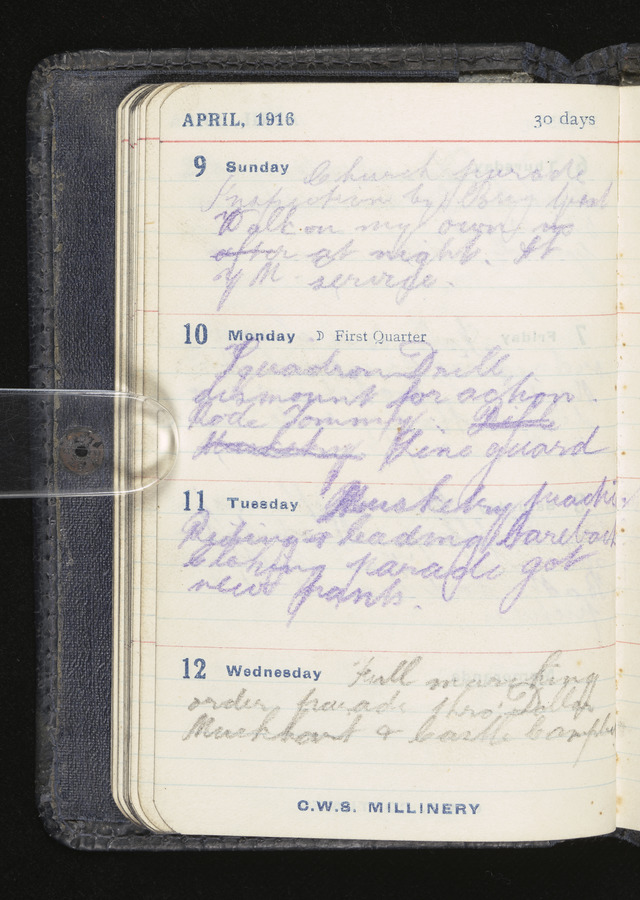 APRIL, 1916 30 days
9 Sunday Church parade
Inspection by
Walk on my own no
after at night. At
Y M service.
10 Monday ☽ First Quarter
Squadron Drill
dismount for action.
Rode Tommy.
Musketry Line guard
11 Tuesday Musketry practice
Riding & leading bareback
Clothing parade got
new pants.
12 Wednesday Full marching
order parade thro' Dollar
Muckhart & Castle Campbell
C.W.S. MILLINERY